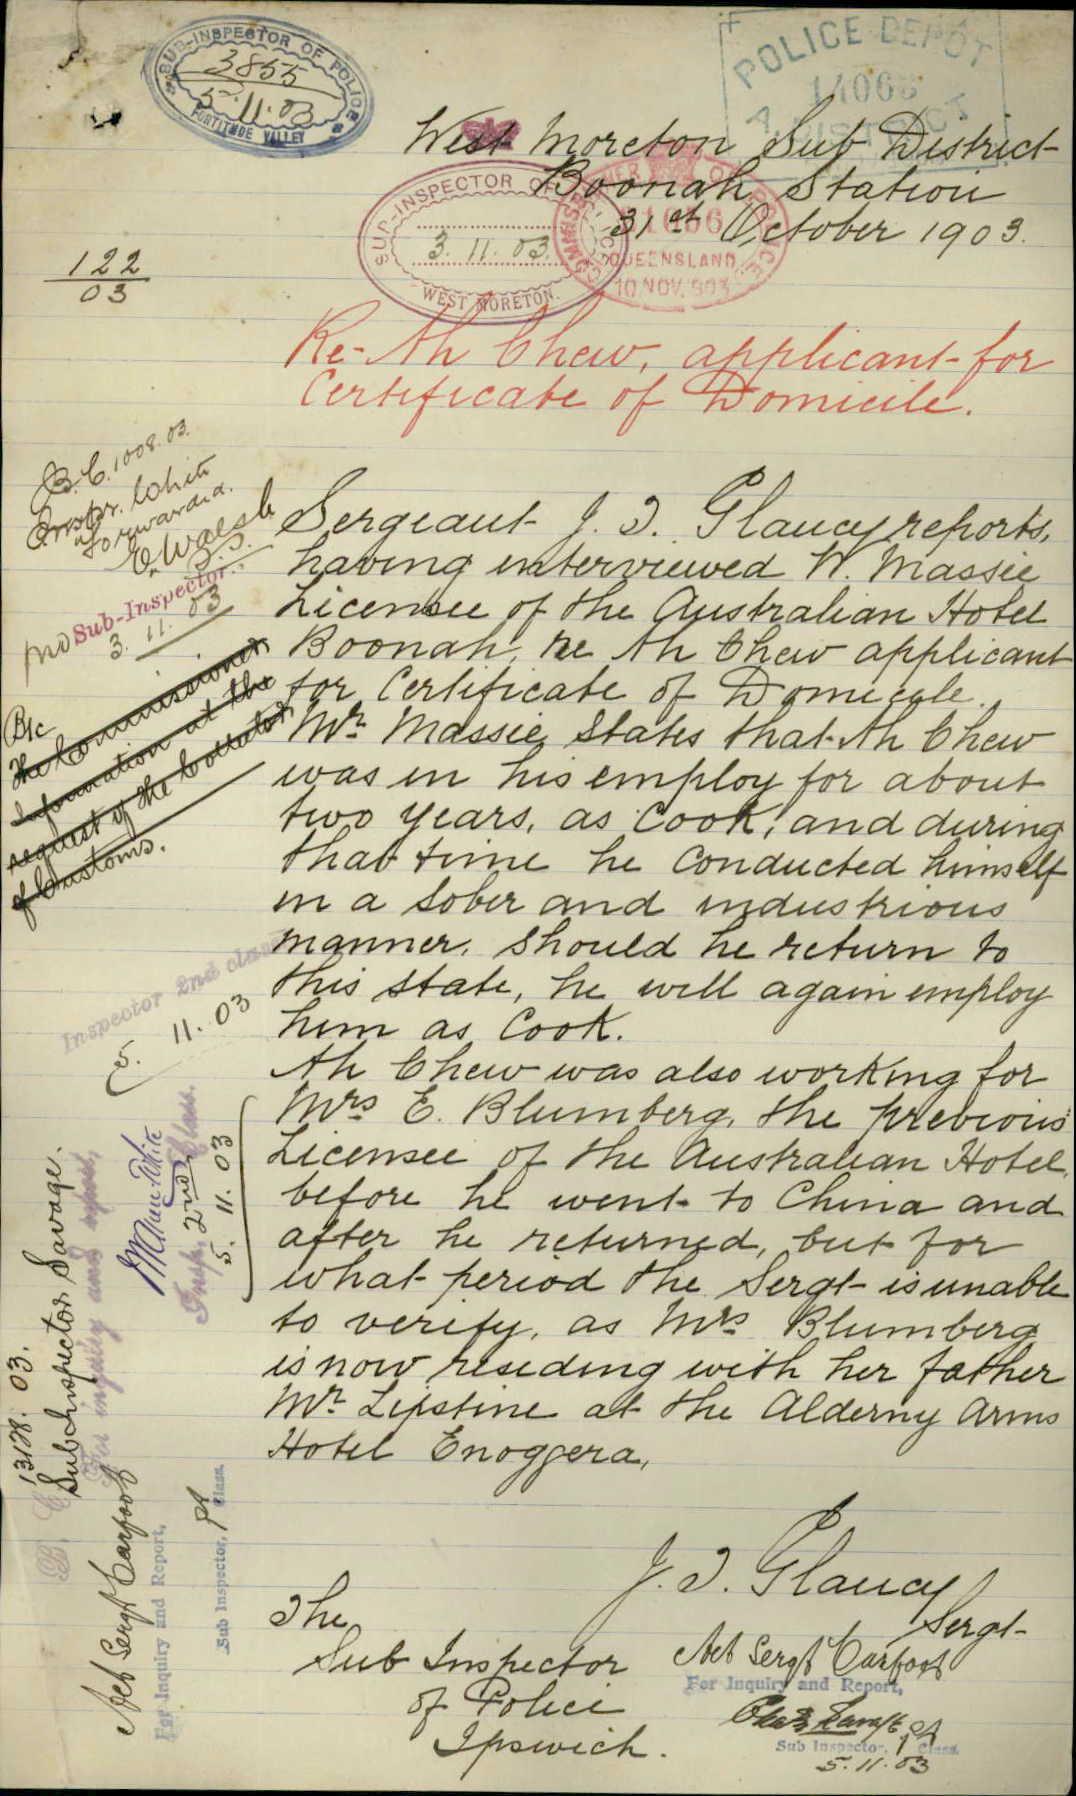 SUB-INSPECTOR OF POLICE
3855
5.11.03
FORTITUDE VALLEY
POLICE DEPOT
A. DISTRICT
West Moreton Sub District
Boonah Station
31st October 1903.
SUB-INSPECTOR OF
3.11.03.
WEST MORETON.
QUEENSLAND
10 NOV. 903
122
03
Re- Ah Chew, applicant for
Certificate of Domicile.
B.C. 1008.03.
Inspr. White
forwarded.
C. Walsh
S.I.
Sub-Inspector.
3.11.03
Sergeant J. T. Glancy reports,
having interviewed W. Massie
Licensee of the Australian Hotel
Boonah, re Ah Chew applicant
for Certificate of Domicile.
Mr. Massie states that Ah Chew
was in his employ for about
two years, as Cook, and during
that time he conducted himself
in a sober and industrious
manner. Should he return to
this state, he will again employ
him as Cook.
Ah Chew was also working for
Mrs E. Blumberg, the previous
Licensee of the Australian Hotel,
before he went to China and
after he returned, but for
what period the Sergt is unable
to verify, as Mrs Blumberg
is now residing with her father
Mr. Lipstine at the Alderny Arms
Hotel Enoggera,
J. T. Glancy
Sergt
The
Sub Inspector
of Police
Ipswich.
B/c
The Commissioner
Information at the
request of the Collector
of Customs.
Inspector 2nd class
5.11.03
13128.03.
Sub Inspector Savage.
For inquiry and report,
Insp. 2nd Class.
5.11.03
Act Sergt Carfoot
For Inquiry and Report,
Sub Inspector, 1st Class.
Act Sergt Carfoot
For Inquiry and Report,
Sub Inspector, 1st Class.
5.11.03